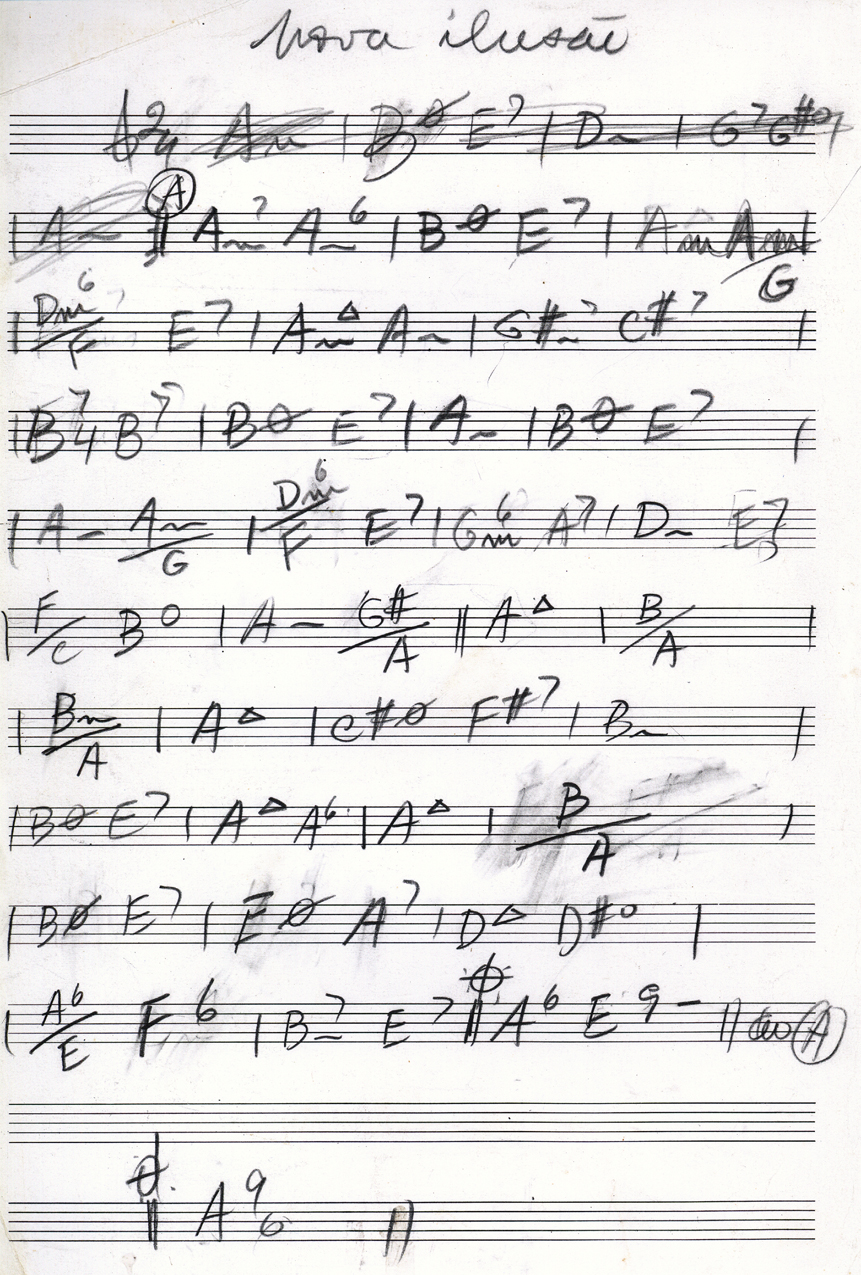 Nova ilusão
2/4 Am | Bø E7 | Dm | G7 G#º7
| Am Ⓐ || Am7 Am6 | Bø E7 | Am Am/G
| Dm6/F E7 | AmΔ Am | G#m7 C#7 |
| B74 B7 | Bø E7 | Am | Bø E7 |
| Am Am/G | Dm6/F E7 | Gm6 A7 | Dm E7
| F/C Bº | Am G#/A || AΔ | B/A |
| Bm/A | AΔ | C#ø F#7 | Bm |
| Bø E7 | AΔ A6 | AΔ | B/A |
| Bø E7 | Eø A7 | DΔ D#º |
| A6/E F6 | Bm7 E7 𝄌 || A6 E9- || ao Ⓐ
𝄌 || A96 ||